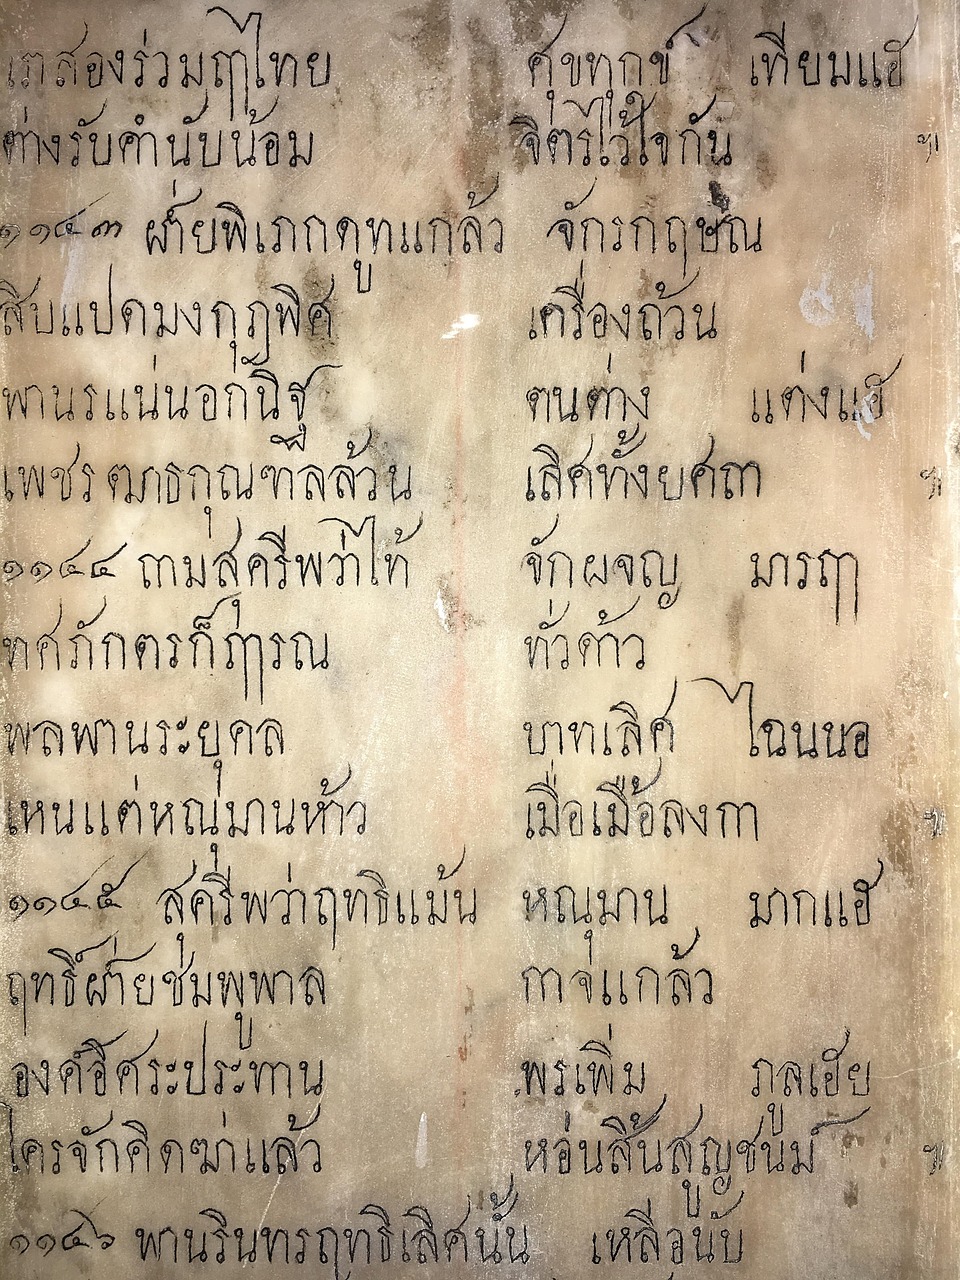 เราสองร่วมฤๅไทย ศุขทุกข์ เทียมแฮ
ต่างรับคำนับน้อม จิตรไว้ใจกัน ฯ
๑๑๔๓ ฝ่ายพิเภกดูทแกล้ว จักรกฤษณ
สิบแปดมงกุฎพิศ เครื่องถ้วน
พานรแน่นอกนิฐ ตนต่าง แต่งแฮ
เพชรฅมาธกุณฑลล้วน เลิศทั้งยศถา ฯ
๑๑๔๔ ถามสุครีพว่าไท้ จักผจญ มารฤๅ
ทศภักตรก็ฤๅรณ ทั่วด้าว
พลพานระยุคล บาทเลิศ ไฉนนอ
เหนแต่หณุมานห้าว เมื่อเมื้อลงกา ฯ
๑๑๔๕ สุครีพว่าฤทธิแม้น หณุมาน มากแฮ
ฤทธิ์ฝ่ายชมพูพาล กาจแกล้ว
องค์อิศระประทาน พรเพิ่ม ภูลเฮย
ใครจักคิดฆ่าแล้ว ห่อนสิ้นสูญชนม์ ฯ
๑๑๔๖ พานรินทรฤทธิเลิศนั้น เหลือนับ